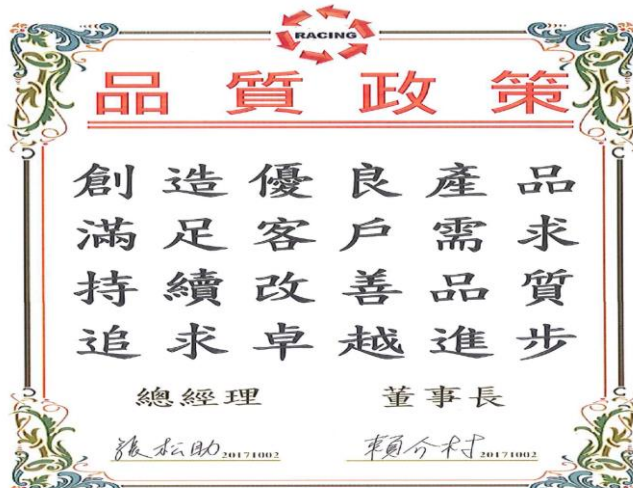 RACING
品質政策
創造優良產品
滿足客戶需求
持續改善品質
追求卓越進步
總經理 董事長
張松助 20171002 賴介村 20171002